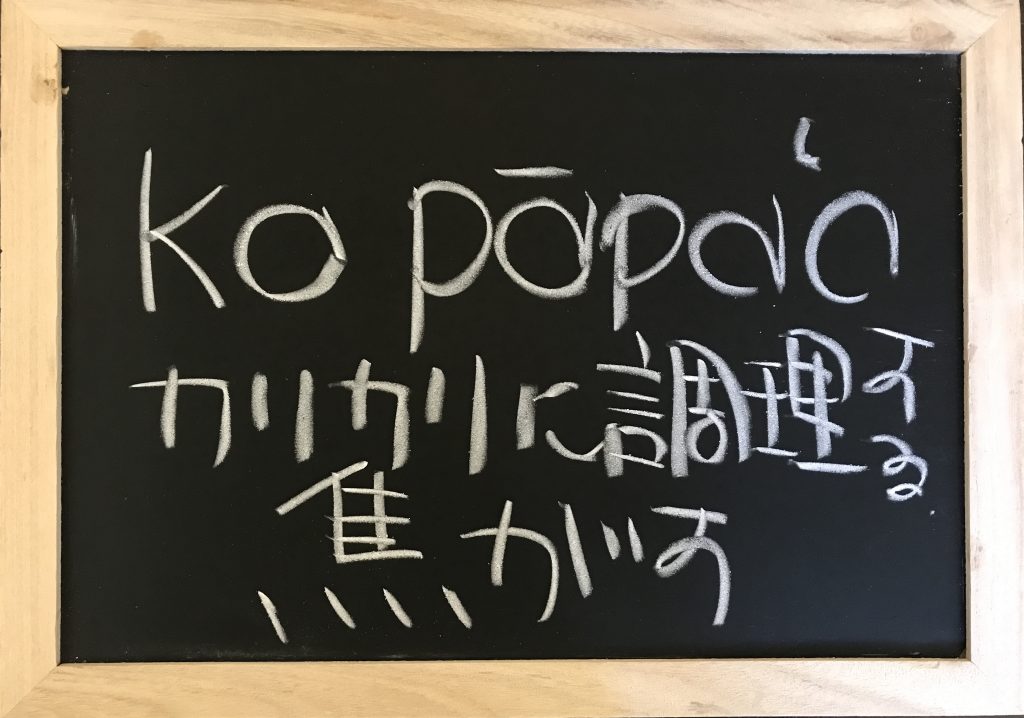 ko pāpaʻa
カリカリに調理する
焦がす